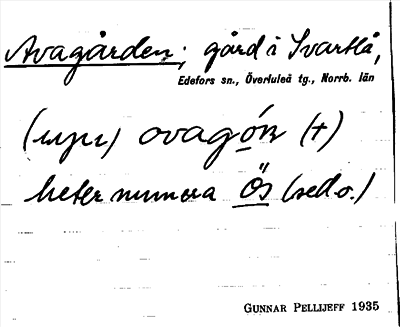 Avagården; gård i Svartlå,
Edefors sn., Överluleå tg., Norrb. län
ovagón (+)
heter numera Ös (sed o.)
GUNNAR PELLIJEFF 1935